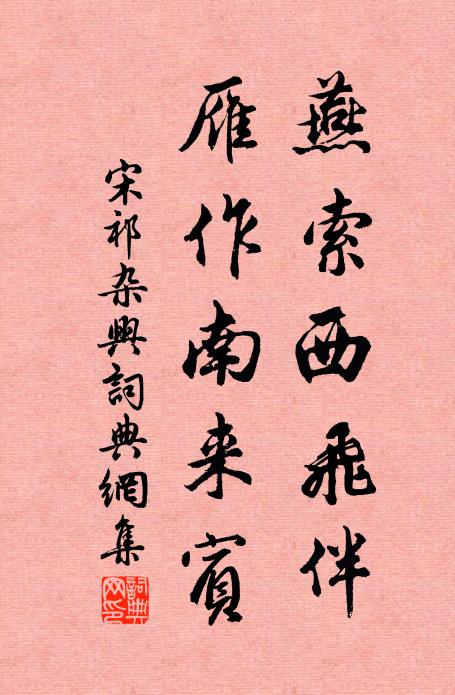 燕索西飛伴
雁作南来賓
宋祁杂興詞典網集
詞典网印